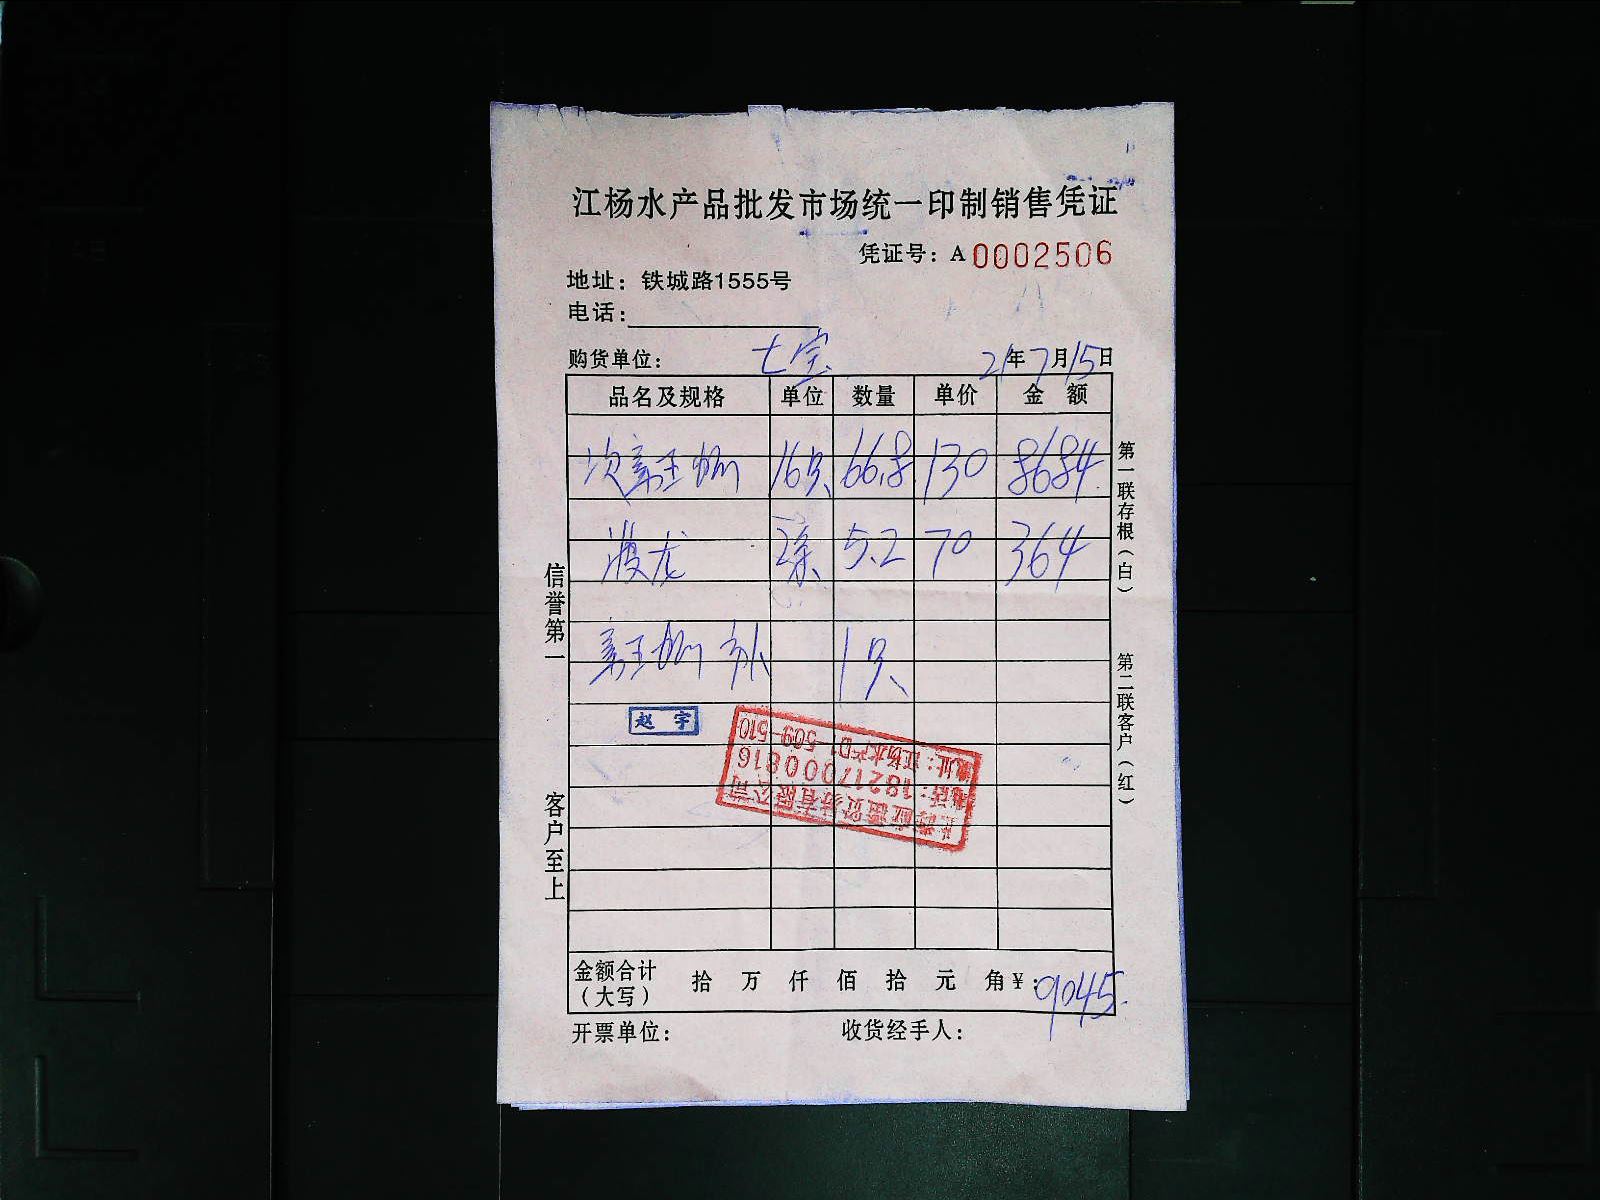 江杨水产品批发市场统一印制销售凭证
凭证号：A 0002506
地址：铁城路1555号
电话：
购货单位： 七宝 21年7月15日
品名及规格 单位 数量 单价 金额
16只 66.8 130 8684
波龙 5.2 70 364
1只
赵宇
地址：江杨水产D1-509-510
电话：18217000816
金额合计（大写） 拾 万 仟 佰 拾 元 角 ¥：9045.
开票单位： 收货经手人：
信誉第一 客户至上
第一联存根（白） 第二联客户（红）